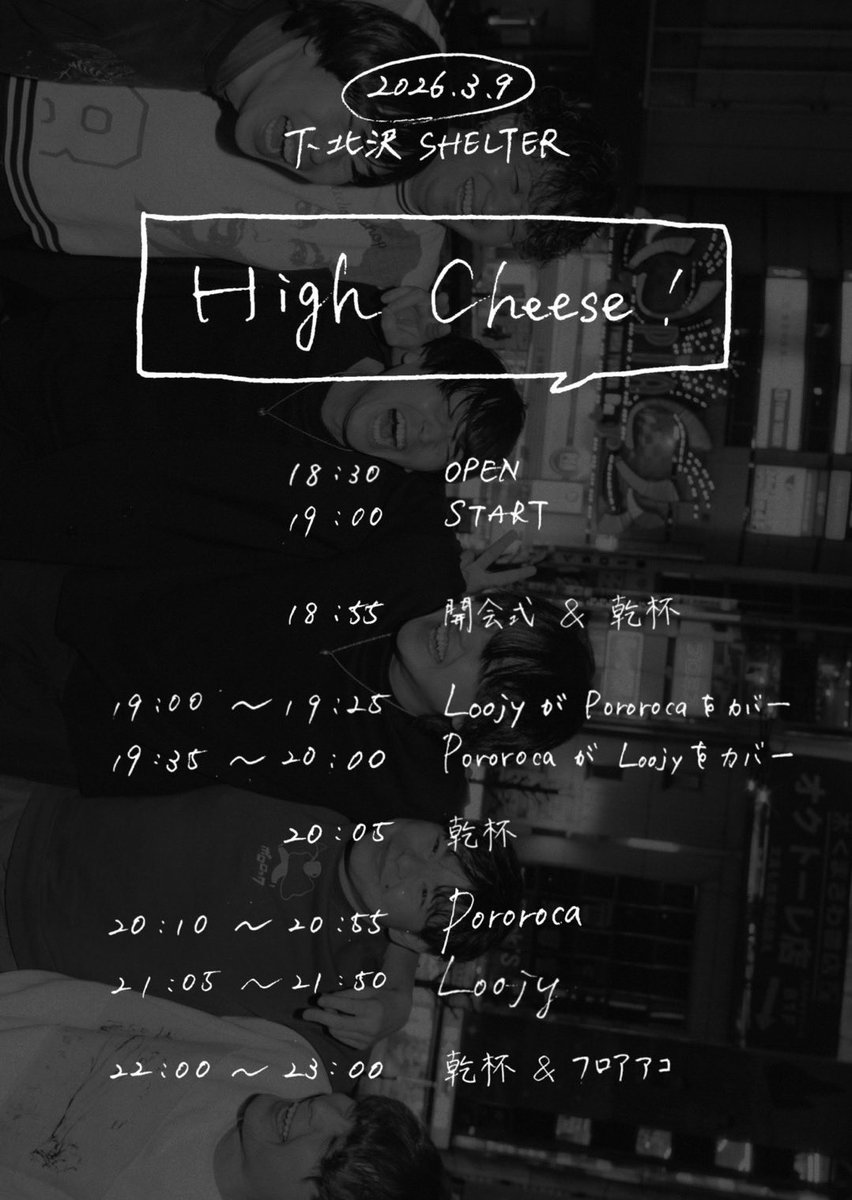 2026.3.9
下北沢 SHELTER
High Cheese!
18:30 OPEN
19:00 START
18:55 開会式 & 乾杯
19:00 〜 19:25 Loojy が Pororoca をカバー
19:35 〜 20:00 Pororoca が Loojy をカバー
20:05 乾杯
20:10 〜 20:55 Pororoca
21:05 〜 21:50 Loojy
22:00 〜 23:00 乾杯 & フロアアコ
オクトーレ店